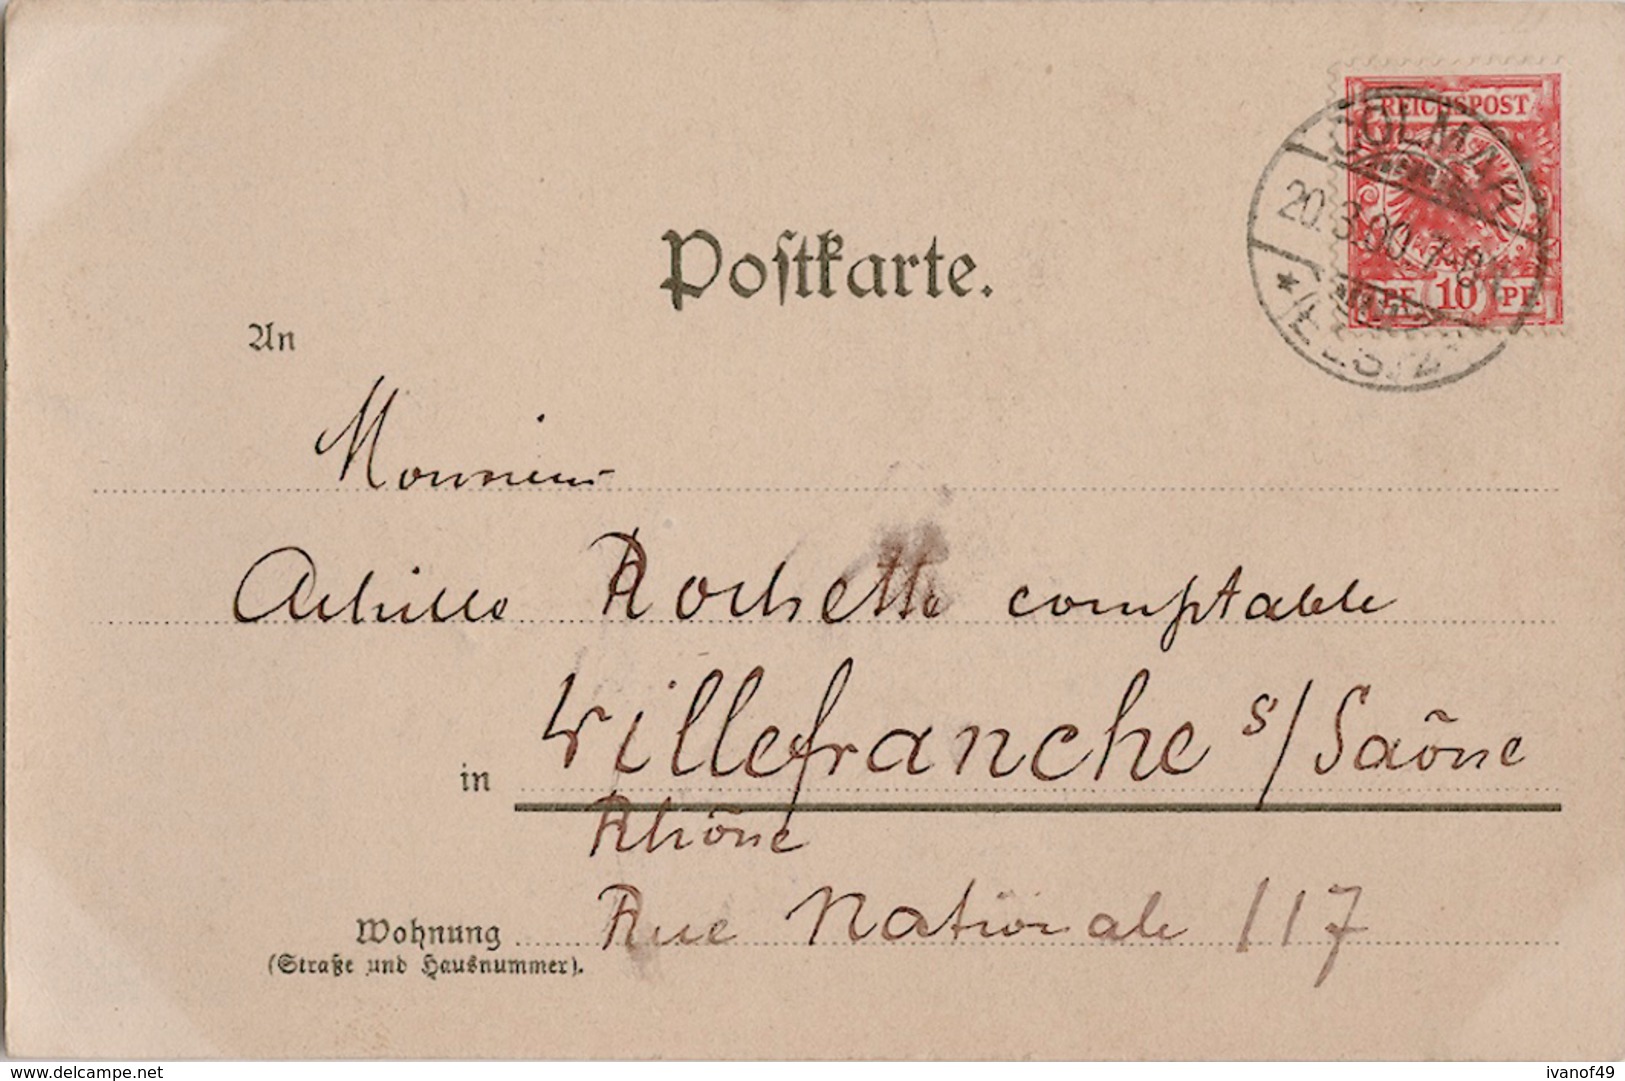 REICHSPOST
COLMAR
20.3.00.7-8
PF. 10 PF.
* (ELS.)
Postkarte.
An
Monsieur
Achille Rochette comptable
in Villefranche s/Saône
Rhône
Wohnung Rue Nationale 117
(Straße und Hausnummer).
www.delcampe.net
ivanof49